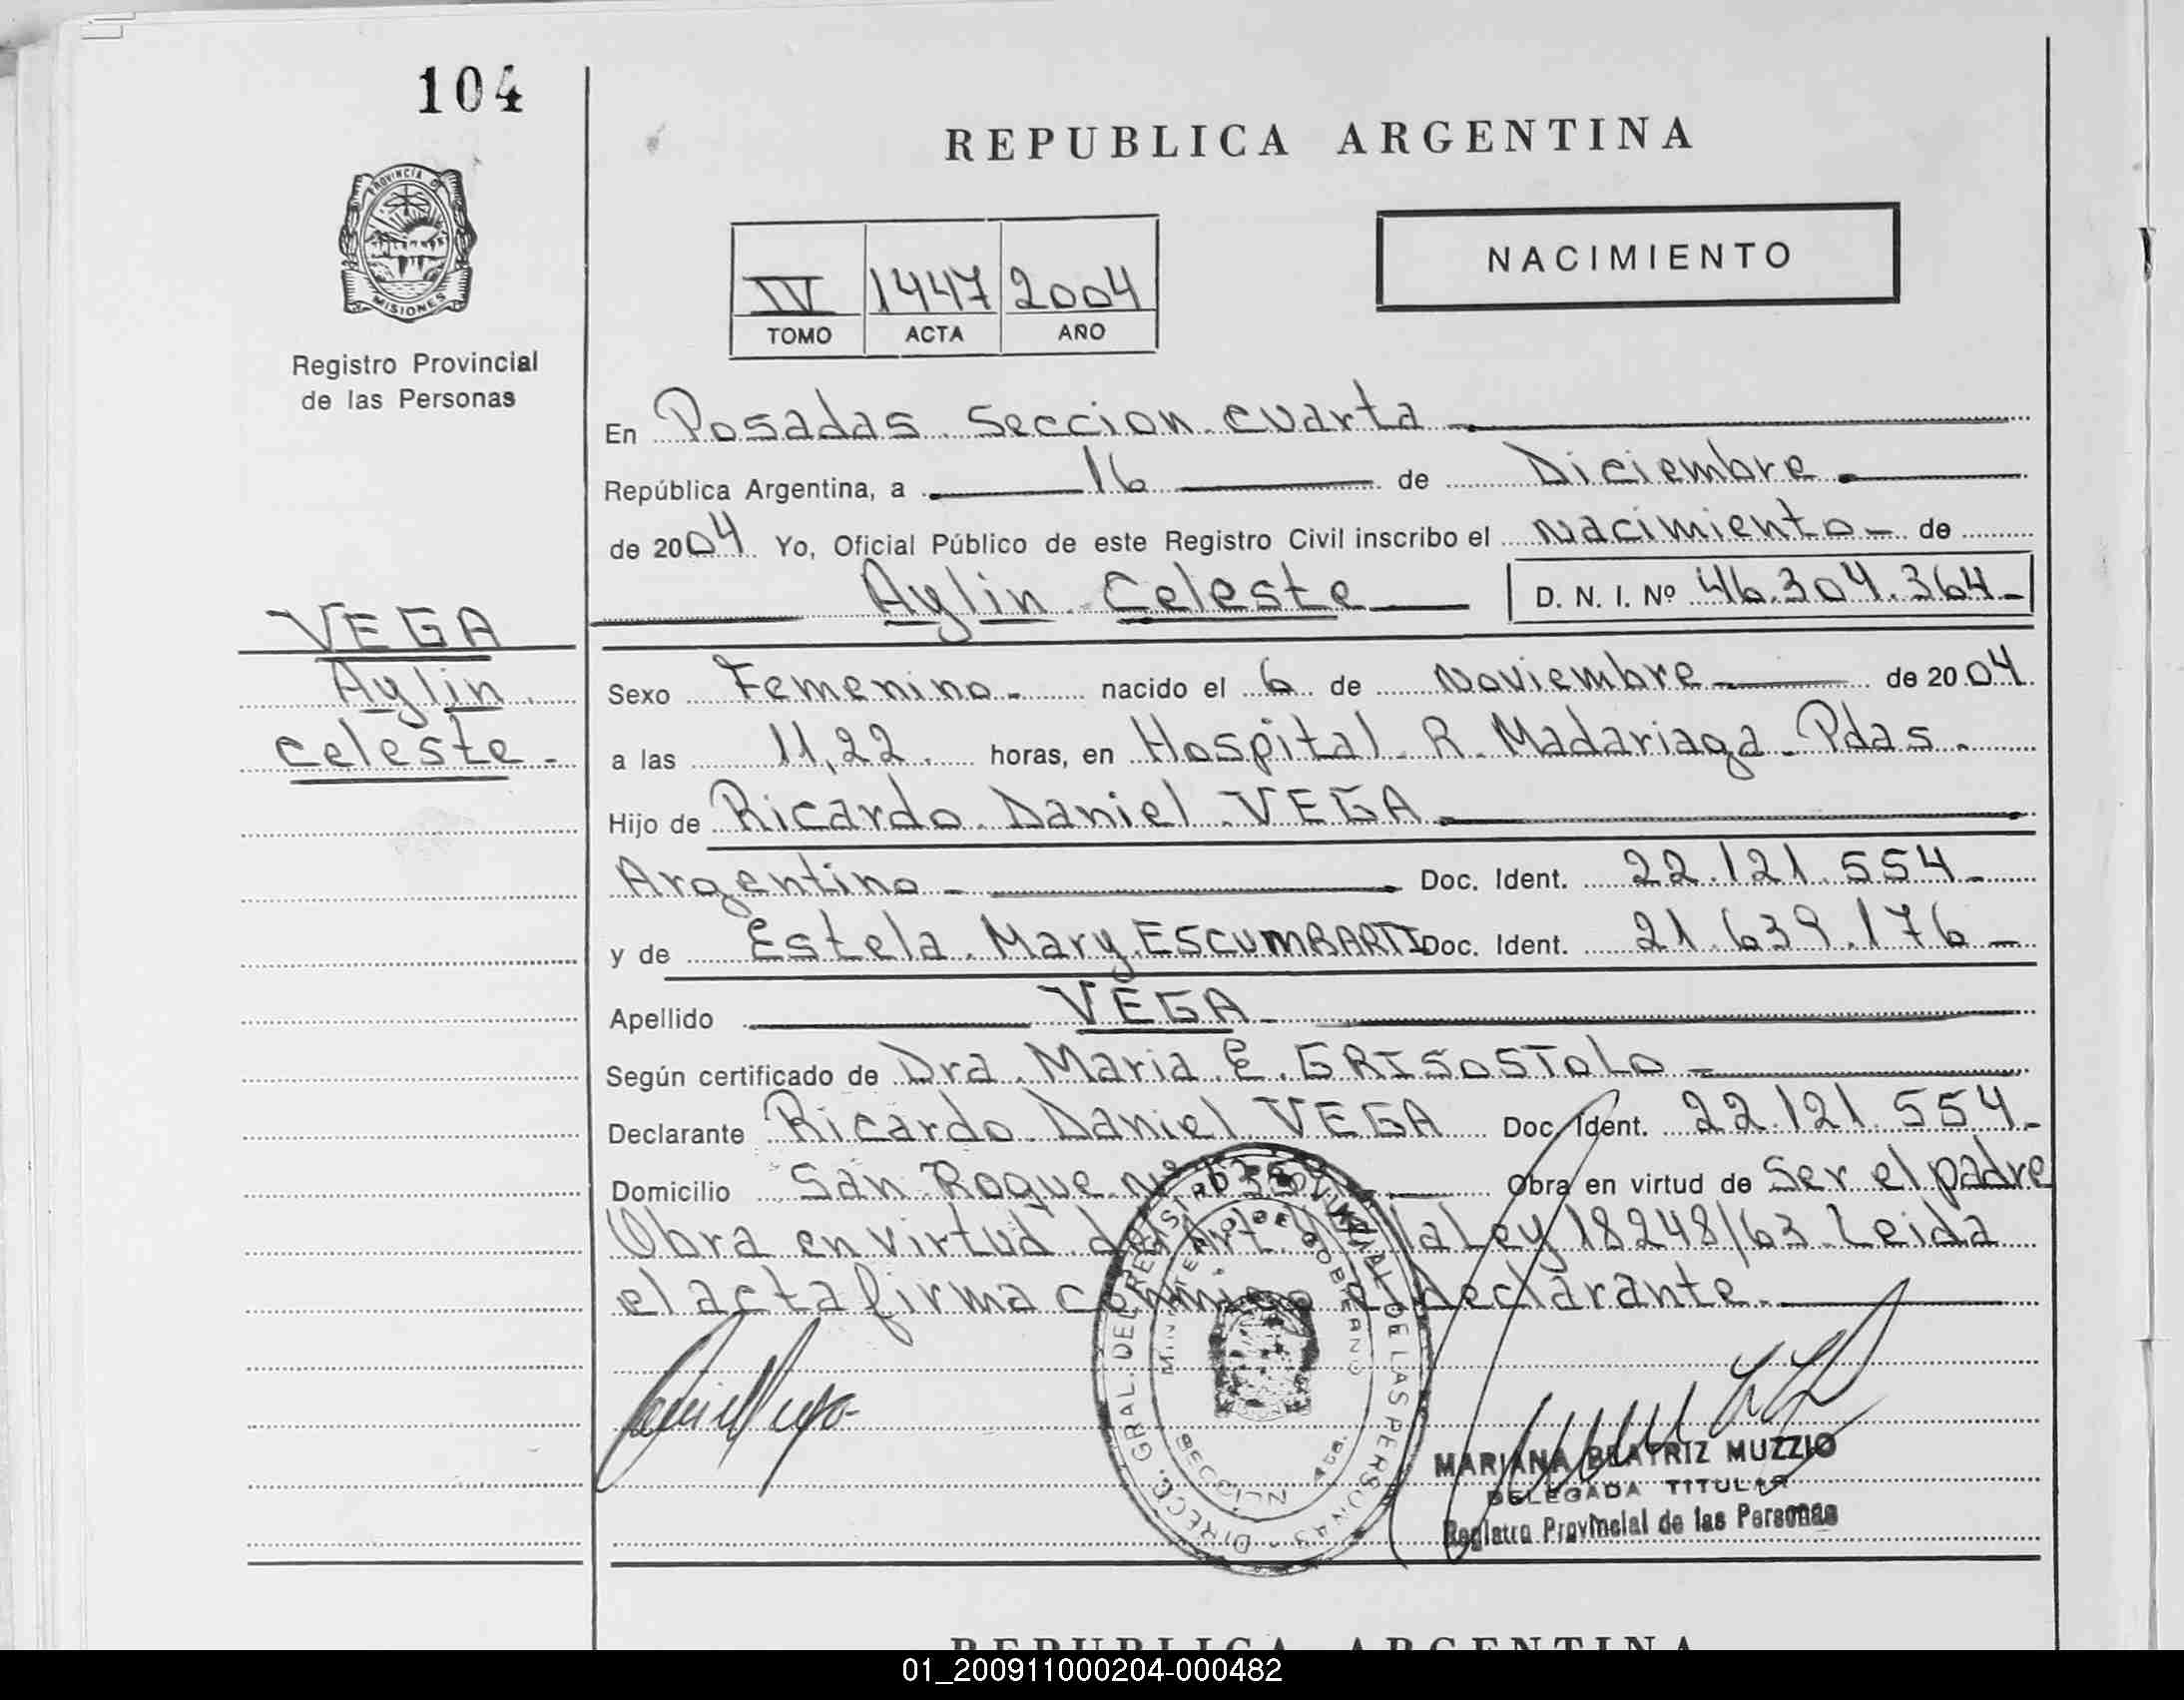 104
REPUBLICA ARGENTINA
PROVINCIA D
MISIONES
Registro Provincial
de las Personas
NACIMIENTO
IV 1447 2004
TOMO ACTA AÑO
En Posadas Seccion cuarta
República Argentina, a 16 de Diciembre
de 2004 Yo, Oficial Público de este Registro Civil inscribo el Nacimiento - de
Aylin Celeste D. N. I. Nº 46.304.364-
VEGA
Aylin
Celeste -
Sexo Femenino - nacido el 6 de Noviembre de 2004
a las 11,22. horas, en Hospital R. Madariaga - Pdas.
Hijo de Ricardo Daniel VEGA
Argentino - Doc. Ident. 22.121.554-
y de Estela Mary ESCUMBARTI Doc. Ident. 21.639.176-
Apellido VEGA
Según certificado de Dra. Maria E. GRISOSTOLO
Declarante Ricardo Daniel VEGA Doc. Ident. 22.121.554-
Domicilio San Roque Nº Obra en virtud de Ser el padre
Obra en virtud del Art. la Ley 18248/63 Leida
el acta firma conmigo el declarante.
DIRECC. GRAL. DEL REGISTRO DE LAS PERSONAS
MINISTERIO DE GOBIERNO
MARIANA BEATRIZ MUZZIO
DELEGADA TITULAR
Registro Provincial de las Personas
REPUBLICA ARGENTINA
01_200911000204-000482